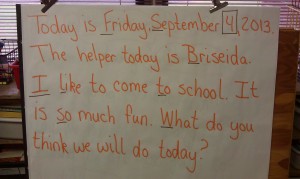 Today is Friday, September 4, 2013.
The helper today is Briseida.
I like to come to school. It
is so much fun. What do you
think we will do today?